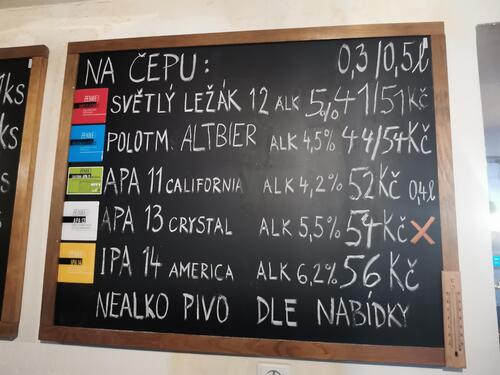 NA ČEPU: 0,3/0,5ℓ
SVĚTLÝ LEŽÁK 12 ALK 5% 41/51Kč
POLOTM. ALTBIER ALK 4,5% 44/54Kč
APA 11 CALIFORNIA ALK 4,2% 52Kč 0,4ℓ
APA 13 CRYSTAL ALK 5,5% 54Kč X
IPA 14 AMERICA ALK 6,2% 56Kč
NEALKO PIVO DLE NABÍDKY